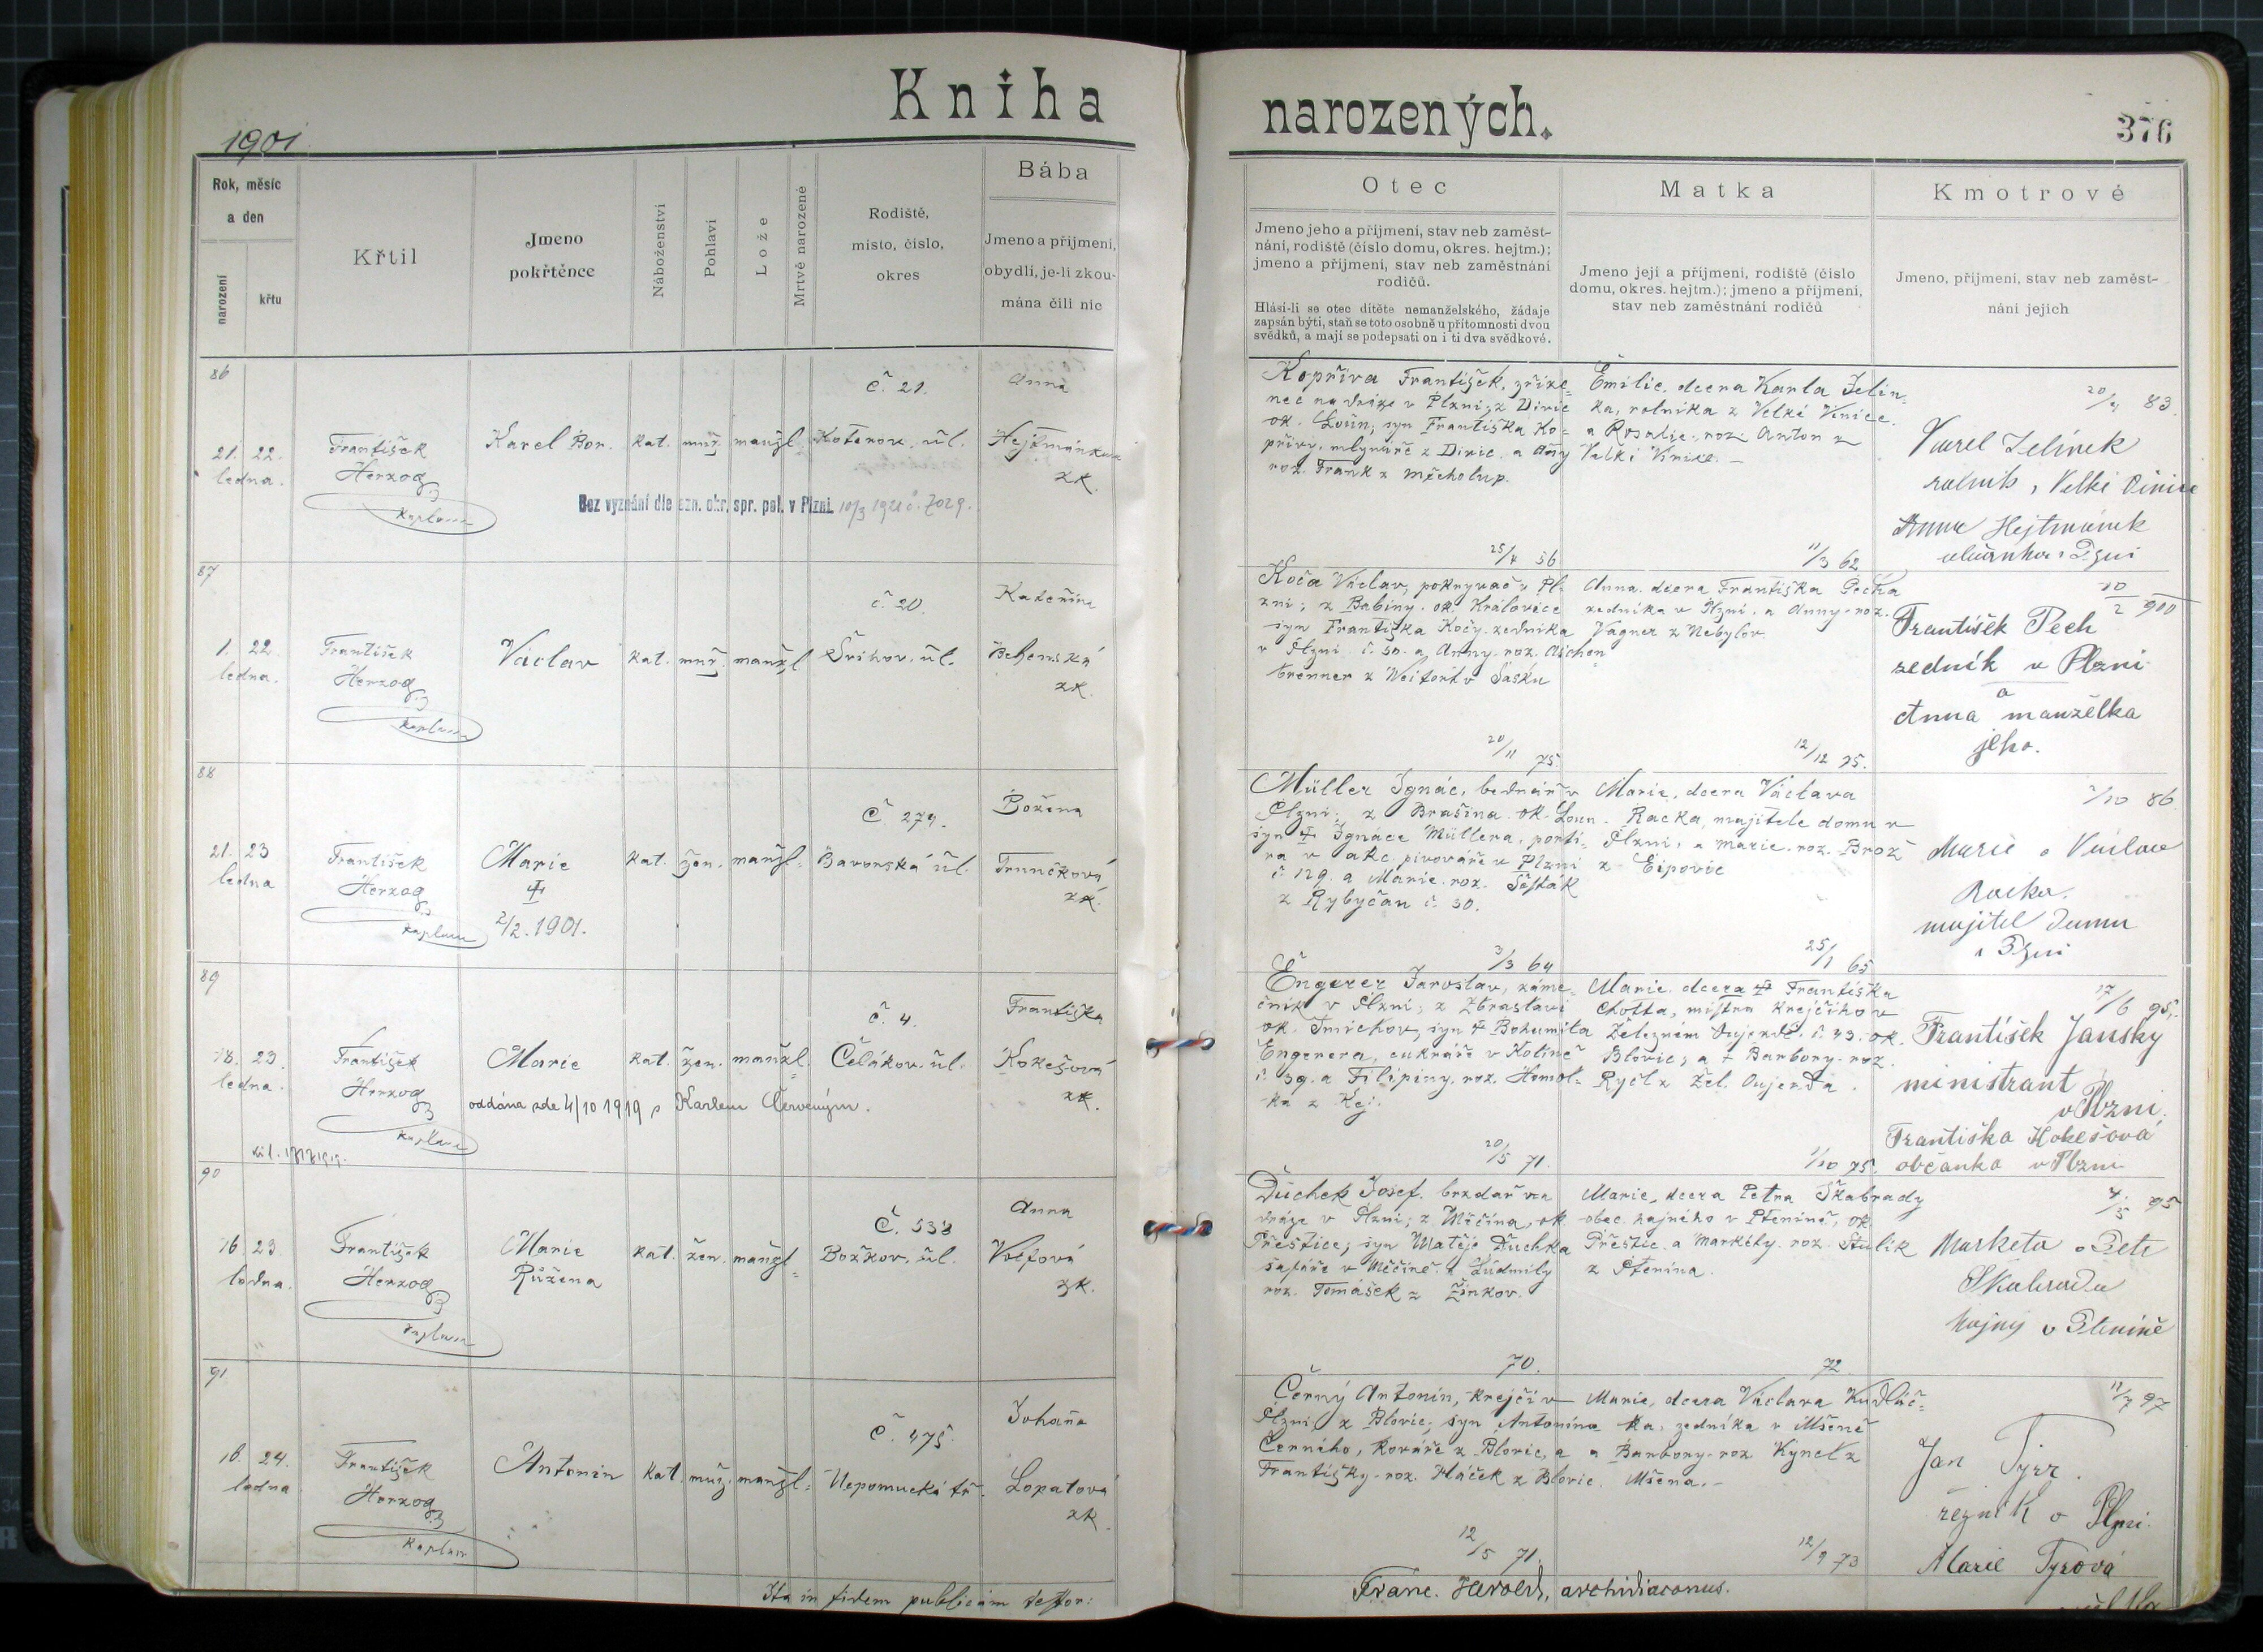 Kniha narozených.
1901
376
Rok, měsíc a den
narození
křtu
Křtil
Jmeno pokřtěnce
Náboženství
Pohlaví
Lože
Mrtvě narozené
Rodiště, místo, číslo, okres
Bába
Jmeno a příjmení, obydlí, je-li zkoumána čili nic
Otec
Jmeno jeho a příjmení, stav neb zaměst-
nání, rodiště (číslo domu, okres. hejtm.);
jmeno a příjmení, stav neb zaměstnání
rodičů.
Hlásí-li se otec dítěte nemanželského, žádaje
zapsán býti, staň se toto osobně u přítomnosti dvou
svědků, a mají se podepsati on i ti dva svědkové.
Matka
Jmeno její a příjmení, rodiště (číslo
domu, okres. hejtm.); jmeno a příjmení,
stav neb zaměstnání rodičů
Kmotrové
Jmeno, příjmení, stav neb zaměst-
nání jejich
86
21. 22. ledna.
František Herzog kaplan
Karel Bor.
kat. muž. manžl.
č. 21. Koterov. ul.
Anna Hejtmánková zk.
Bez vyznání dle ozn. okr. spr. pol. v Plzni. 10/3 1921 č. 7029.
Kopřiva František, zříze-
nec na dráze v Plzni; z Divic
ok. Loun, syn Františka Ko-
přivy, mlynáře z Divic. a Any
roz. Frank z Měcholup.
25/4 56
Emilie, dcera Karla Jelín-
ka, rolníka z Velké Vinice
a Rosalie, roz. Anton z
Velké Vinice. –
11/3 62
20/4 83.
Karel Jelínek
rolník, Velké
Anna Hejtmánek
občanka v Plzni
87
1. 22. ledna.
František Herzog kaplan
Václav
kat. muž. manžl.
č. 20. Švihov. ul.
Kateřina Behenská zk.
Koča Václav, pokryvač v Pl-
zni; z Babiny. ok. Kralovice
syn Františka Koči zedníka
v Plzni č. 50. a Anny roz. Aschen-
brenner z v Sasku
20/11 75.
Anna. dcera Františka Pecha
zedníka v Plzni. a Anny roz.
Vagner z Nebylov
12/12 75.
10/2 900
František Pech
zedník v Plzni
a
Anna manželka
jeho.
88
21. 23 ledna
František Herzog kaplan
Marie
2/2. 1901.
kat. žen. manžl.
Č 279. Bavorská ul.
Božena Trunečková zk.
Müller Ignác, bednář v
Plzni; z Brašina. ok. Loun.
syn Ignáce Müllera, portí-
ra v akc. pivováře v Plzni
č. 129. a Marie. roz. Šesták
z Rybyčan č. 30.
3/3 64
Marie, dcera Václava
Racka, majitele domu v
Plzni, a Marie. roz. Brož
z Ejpovic
25/1 65
7/10 86
Marie a Václav
Racka.
majitel domu
v Plzni
89
18. 23. ledna.
František Herzog kaplan
Marie
oddána zde 4/10 1919 s Karlem Červeným.
kat. žen. manžl.
č. 4. Čelákov. ul.
Františka Kokešová zk.
Engerer Jaroslav, záme-
čník v Plzni; z Zbraslavi
ok. Smíchov, syn Bohumila
Engerera, cukráře v Kolíně
č. 39. a Filipiny. roz. Homol-
ka z Kej.
20/5 71.
Marie. dcera Františka
Chotta, mistra krejčího v
Železném Oujezdě. č. 43. ok.
Blovic; a Barbory. roz.
Rys z Žel. Oujezda.
1/10 75.
17/6 95.
František Janský
ministrant
v Plzni.
Františka Kokešová
občanka v Plzni
90
16. 23. ledna.
František Herzog kaplan
Marie Růžena
kat. žen. manžl.
Č. 538 Božkov. ul.
Anna Volfová zk.
Duchek Josef. brzdař na
dráze v Plzni; z Měčína, ok.
Přeštice; syn Matěje Duchka
šafáře v Měčíně. a Ludmily
roz. Tomášek z Žinkov.
70.
Marie, dcera Petra Škabrady
obec. hajného v Ptenině, ok.
Přeštic. a Markéty. roz. Štulík
z Ptenína.
72
4/5 95
Marketa a Petr
Škabrada
hajný v Ptenině
91
10. 24. ledna
František Herzog kaplan
Antonín
kat. muž. manžl.
Č 475. Nepomucká tř.
Johana Lopatová zk.
Černý Antonín, krejčí v
Plzni, z Blovic; syn Antonína
Černého, kováře z Blovic, a
Františky. roz. Hláček z Blovic.
12/5 71.
Marie, dcera Václava Kudláč-
ka, zedníka v Mšeně
a Barbory roz Kynel z
Mšena. –
12/9 73
11/7 97
Jan Tyrr.
řezník v Plzni.
Marie Tyrová
Ita in fidem publicam testor:
Franc. Herold, archidiaconus.